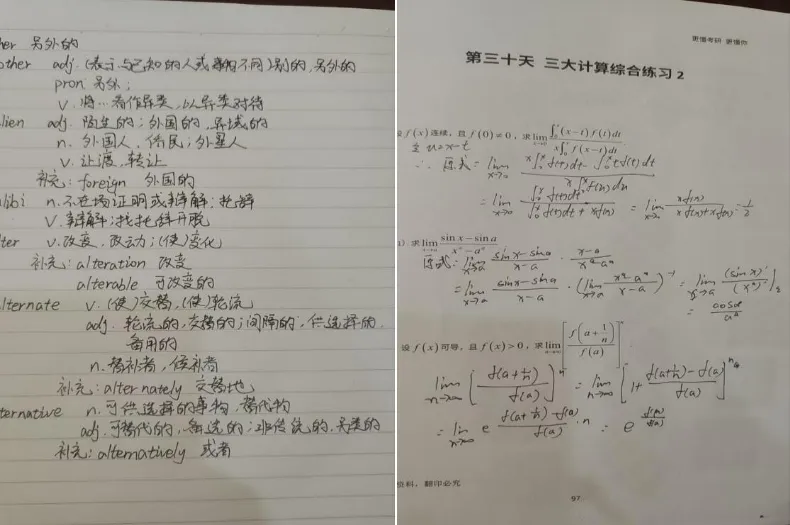 her 另外的
other adj.(表示与已知的人或事物不同)别的,另外的
pron 另外;
v. 将…看作异类,以异类对待
lien adj. 陌生的;外国的,异域的
n. 外国人,侨民;外星人
v. 让渡,转让
补充:foreign 外国的
libi n.不在场证明或辩解;托辞
v.辩解;找托辞开脱
ter v.改变,改动;(使)变化
补充:alteration 改变
alterable 可改变的
lternate v.(使)交替,(使)轮流
adj. 轮流的,交替的;间隔的,供选择的,
备用的
n.替补者,候补者
补充:alternately 交替地
ternative n.可供选择的事物,替代物
adj.可替代的,备选的;非传统的,另类的
补充:alternatively 或者
更懂考研 更懂你
第三十天 三大计算综合练习 2
设 f(x) 连续,且 f(0)≠0,求 lim ∫₀ˣ(x−t)f(t)dt / x∫₀ˣf(x−t)dt
令 u=x−t
∴ 原式= lim x→0 (x∫₀ˣf(t)dt − ∫₀ˣtf(t)dt) / x∫₀ˣf(u)du
= lim x→0 ∫₀ˣf(t)dt / (∫₀ˣf(t)dt + xf(x)) = lim x→0 xf(x) / (xf(x)+xf(x)) = 1/2
) 求 lim (sin x − sin a) / (xᵃ − aᵃ)
原式= lim x→a (sinx−sina)/(x−a) · (x−a)/(xᵃ−aᵃ)
= lim x→a (sinx−sina)/(x−a) · (lim x→a (xᵃ−aᵃ)/(x−a))⁻¹ = lim x→a (sinx)'/(xᵃ)'
= cosa/aᵃ
设 f(x) 可导,且 f(x)>0,求 lim n→∞ [f(a+1/n)/f(a)]ⁿ
lim n→∞ [f(a+1/n)/f(a)]ⁿ = lim n→∞ [1+ (f(a+1/n)−f(a))/f(a)]ⁿ
= lim n→∞ e (f(a+1/n)−f(a))/f(a) · n = e
资料,翻印必究
97